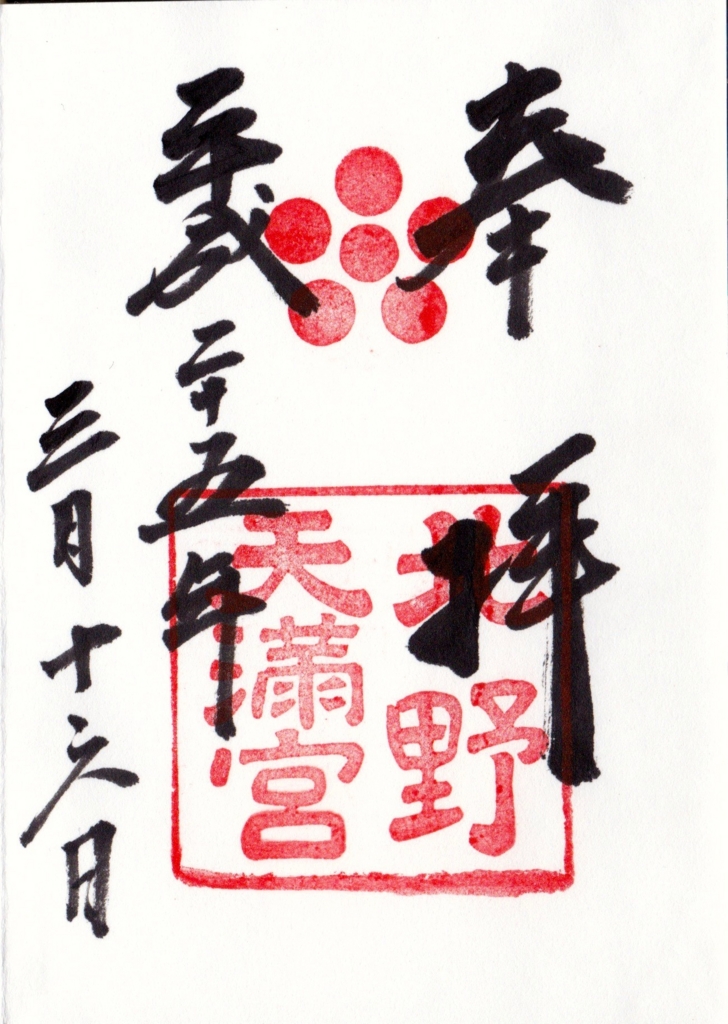 奉拝
北野
天満宮
平成二十五年
三月十六日